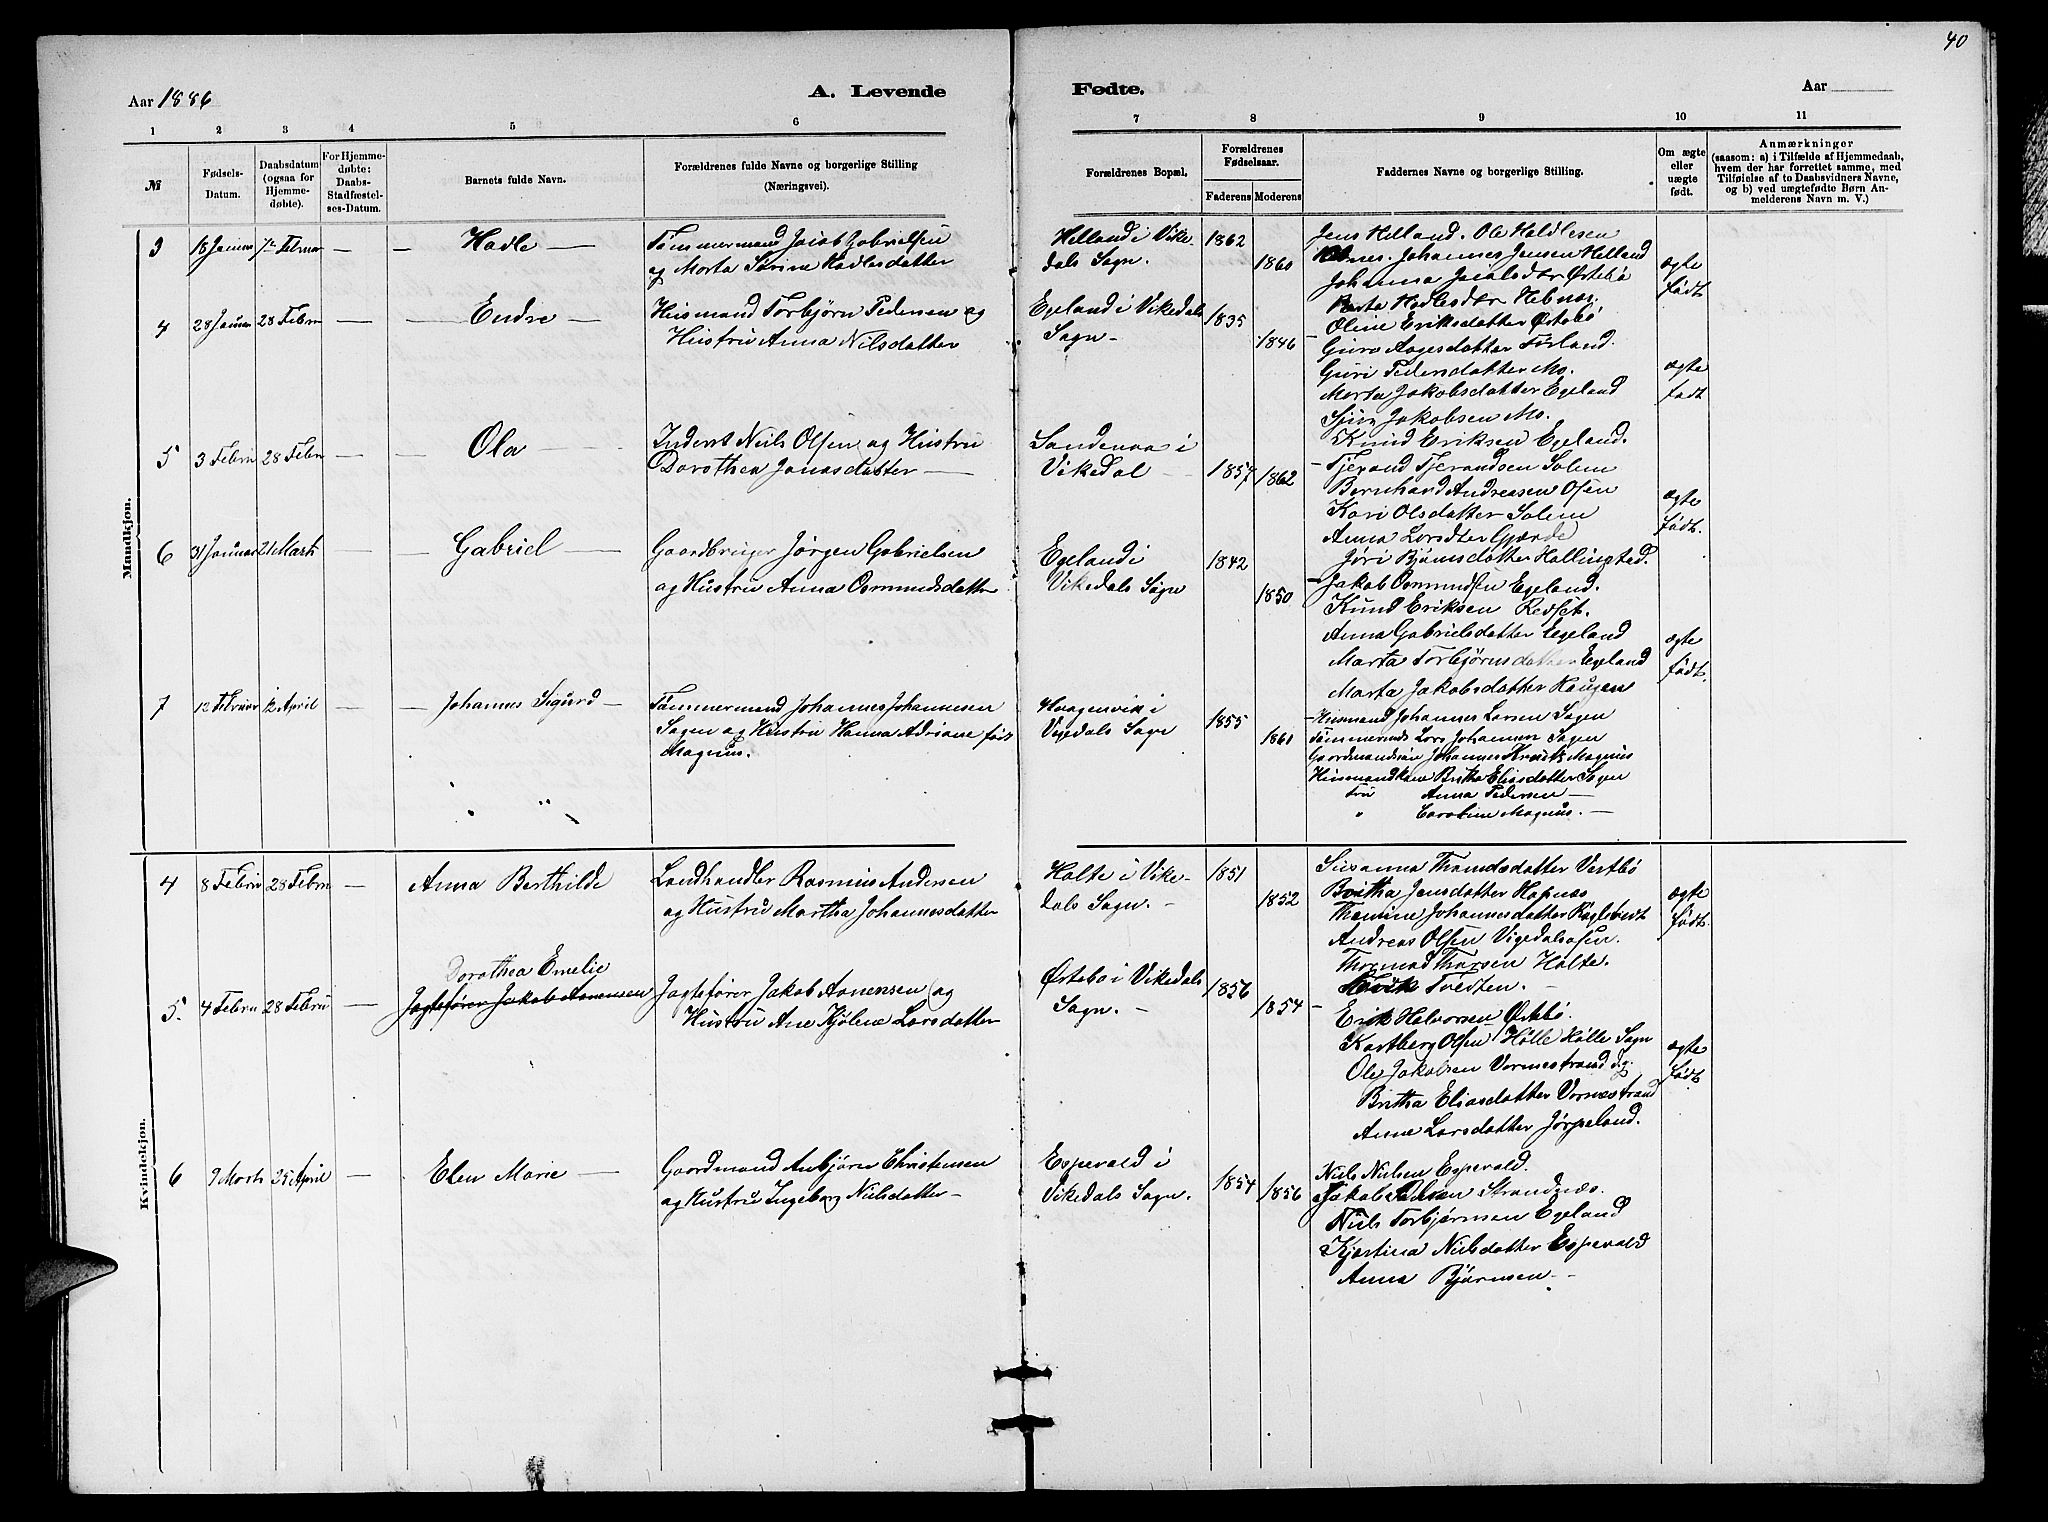 40
Aar 1886 A. Levende Fødte. Aar
1 2 3 4 5 6 7 8 9 10 11
№
Fødsels-
Datum.
Daabsdatum
(ogsaa for
Hjemme-
døbte).
For Hjemme-
døbte:
Daabs-
Stadfæstel-
ses-Datum.
Barnets fulde Navn.
Forældrenes fulde Navne og borgerlige Stilling
(Næringsvei).
Forældrenes Bopæl,
Forældrenes
Fødselsaar.
Faderens Moderens
Faddernes Navne og borgerlige Stilling.
Om ægte
eller
uægte
født.
Anmærkninger
(saasom: a) i Tilfælde af Hjemmedaab,
hvem der har forrettet samme, med
Tilføielse af to Daabsvidners Navne,
og b) ved uægtefødte Børn An-
melderens Navn m. V.)
Mandkjøn.
3 18 Januar 7de Februar — — Hadle —
Tømmermand Jacob Gabrielsen
og Marta Sørine Hadlesdatter
Helland i Vike-
dals Sogn.
1862
1860
Jens Helland. Ole Haldlesen
Johannes Jensen Helland
Johanna Jacobsdtr Østebø
Berta Hadlesdtr Hebnæs
Oline Eriksdatter Østebø
ægte
født
4 28 Januar 28 Febru — — Endre —
Husmand Torbjørn Pedersen og
Hustru Anna Nilsdatter
Egeland i Vikedals
Sogn —
1835
1846
Guro Aagesdatter Førland.
Guri Pedersdatter Mo.
Marta Jakobsdatter Egeland
Sjur Jakobsen Mo.
Knud Eriksen Egeland.
ægte
født
5 3 Febru 28 Febru — — Ola —
Inderst Niels Olsen og Hustru
Dorothea Jonasdatter —
Sandenaa i
Vikedal —
1857 1862
Tjerand Tjerandsen Solem
Bernhard Andreasen Ofen
Kari Olsdatter Solem
Anna Larsdter Gjærde
Jøri Bjørnsdatter Hallingstad.
ægte
født.
6 31 Januar 21 Marts — — Gabriel —
Gaardbruger Jørgen Gabrielsen
og Hustru Anna Osmundsdatter
Egeland i
Vikedals Sogn
1842
1850
Jakob Osmundsen Egeland.
Knud Eriksen Redset.
Anna Gabrielsdatter Egeland
Marta Torbjørnsdatter Egeland
Marta Jakobsdatter Haugen
ægte
født.
7 12 Februar 12 April — — Johannes Sigurd —
Tømmermand Johannes Johannesen
Sagen og Hustru Hanna Adriane født
Magnus.
Haagenvik i
Vigedals Sogn
1855
1861
Husmand Johannes Larsen Sagen
Tømmermand Lars Johannesen Sagen
Gaardmandssøn Johannes Magnus
Husmandkone Britha Eliasdatter Sagen
Fru Anna Pedersen —
" Caroline Magnus. —
Kvindekjøn.
4 8 Febru 28 Febru — Anna Berthilde
Landhandler Rasmus Andersen
og Hustru Martha Johannesdatter
Holte i Vike-
dals Sogn. —
1851
1852
Susanna Thomasdatter Vestbø
Britha Jensdatter Hapnæs
Thomine Johannesdatter
Andreas Olsen Vigedalsosen.
Thormod Thorsen Holte.
Tvedten. —
ægte
født.
5. 4 Febru 28 Febru —
Dorothea Emelie
Jagtefører Jakob Aanensen
Jagtefører Jakob Aanensen og
Hustru Ane Kjølene Larsdatter
Østebø i Vikedals
Sogn. —
1856
1854
Erik Halvorsen Østebø
Kartberg Olsen Hølle Hølle Sogn
Ole Jakobsen Vormestrand dg.
Britha Eliasdatter Vormestrand
Anne Larsdatter Jørpeland.
ægte
født
6 7 Marts 25 April — Elen Marie —
Gaardmand Anbjørn Christensen
og Hustru Ingeborg Nielsdatter —
Espevald i
Vikedals Sogn.
1854 1856
Niels Nielsen Espevold.
Jakob Strandnæs.
Niels Torbjørnsen Egeland
Kjistina Nielsdatter Espevald
Anna Bjørnsen —